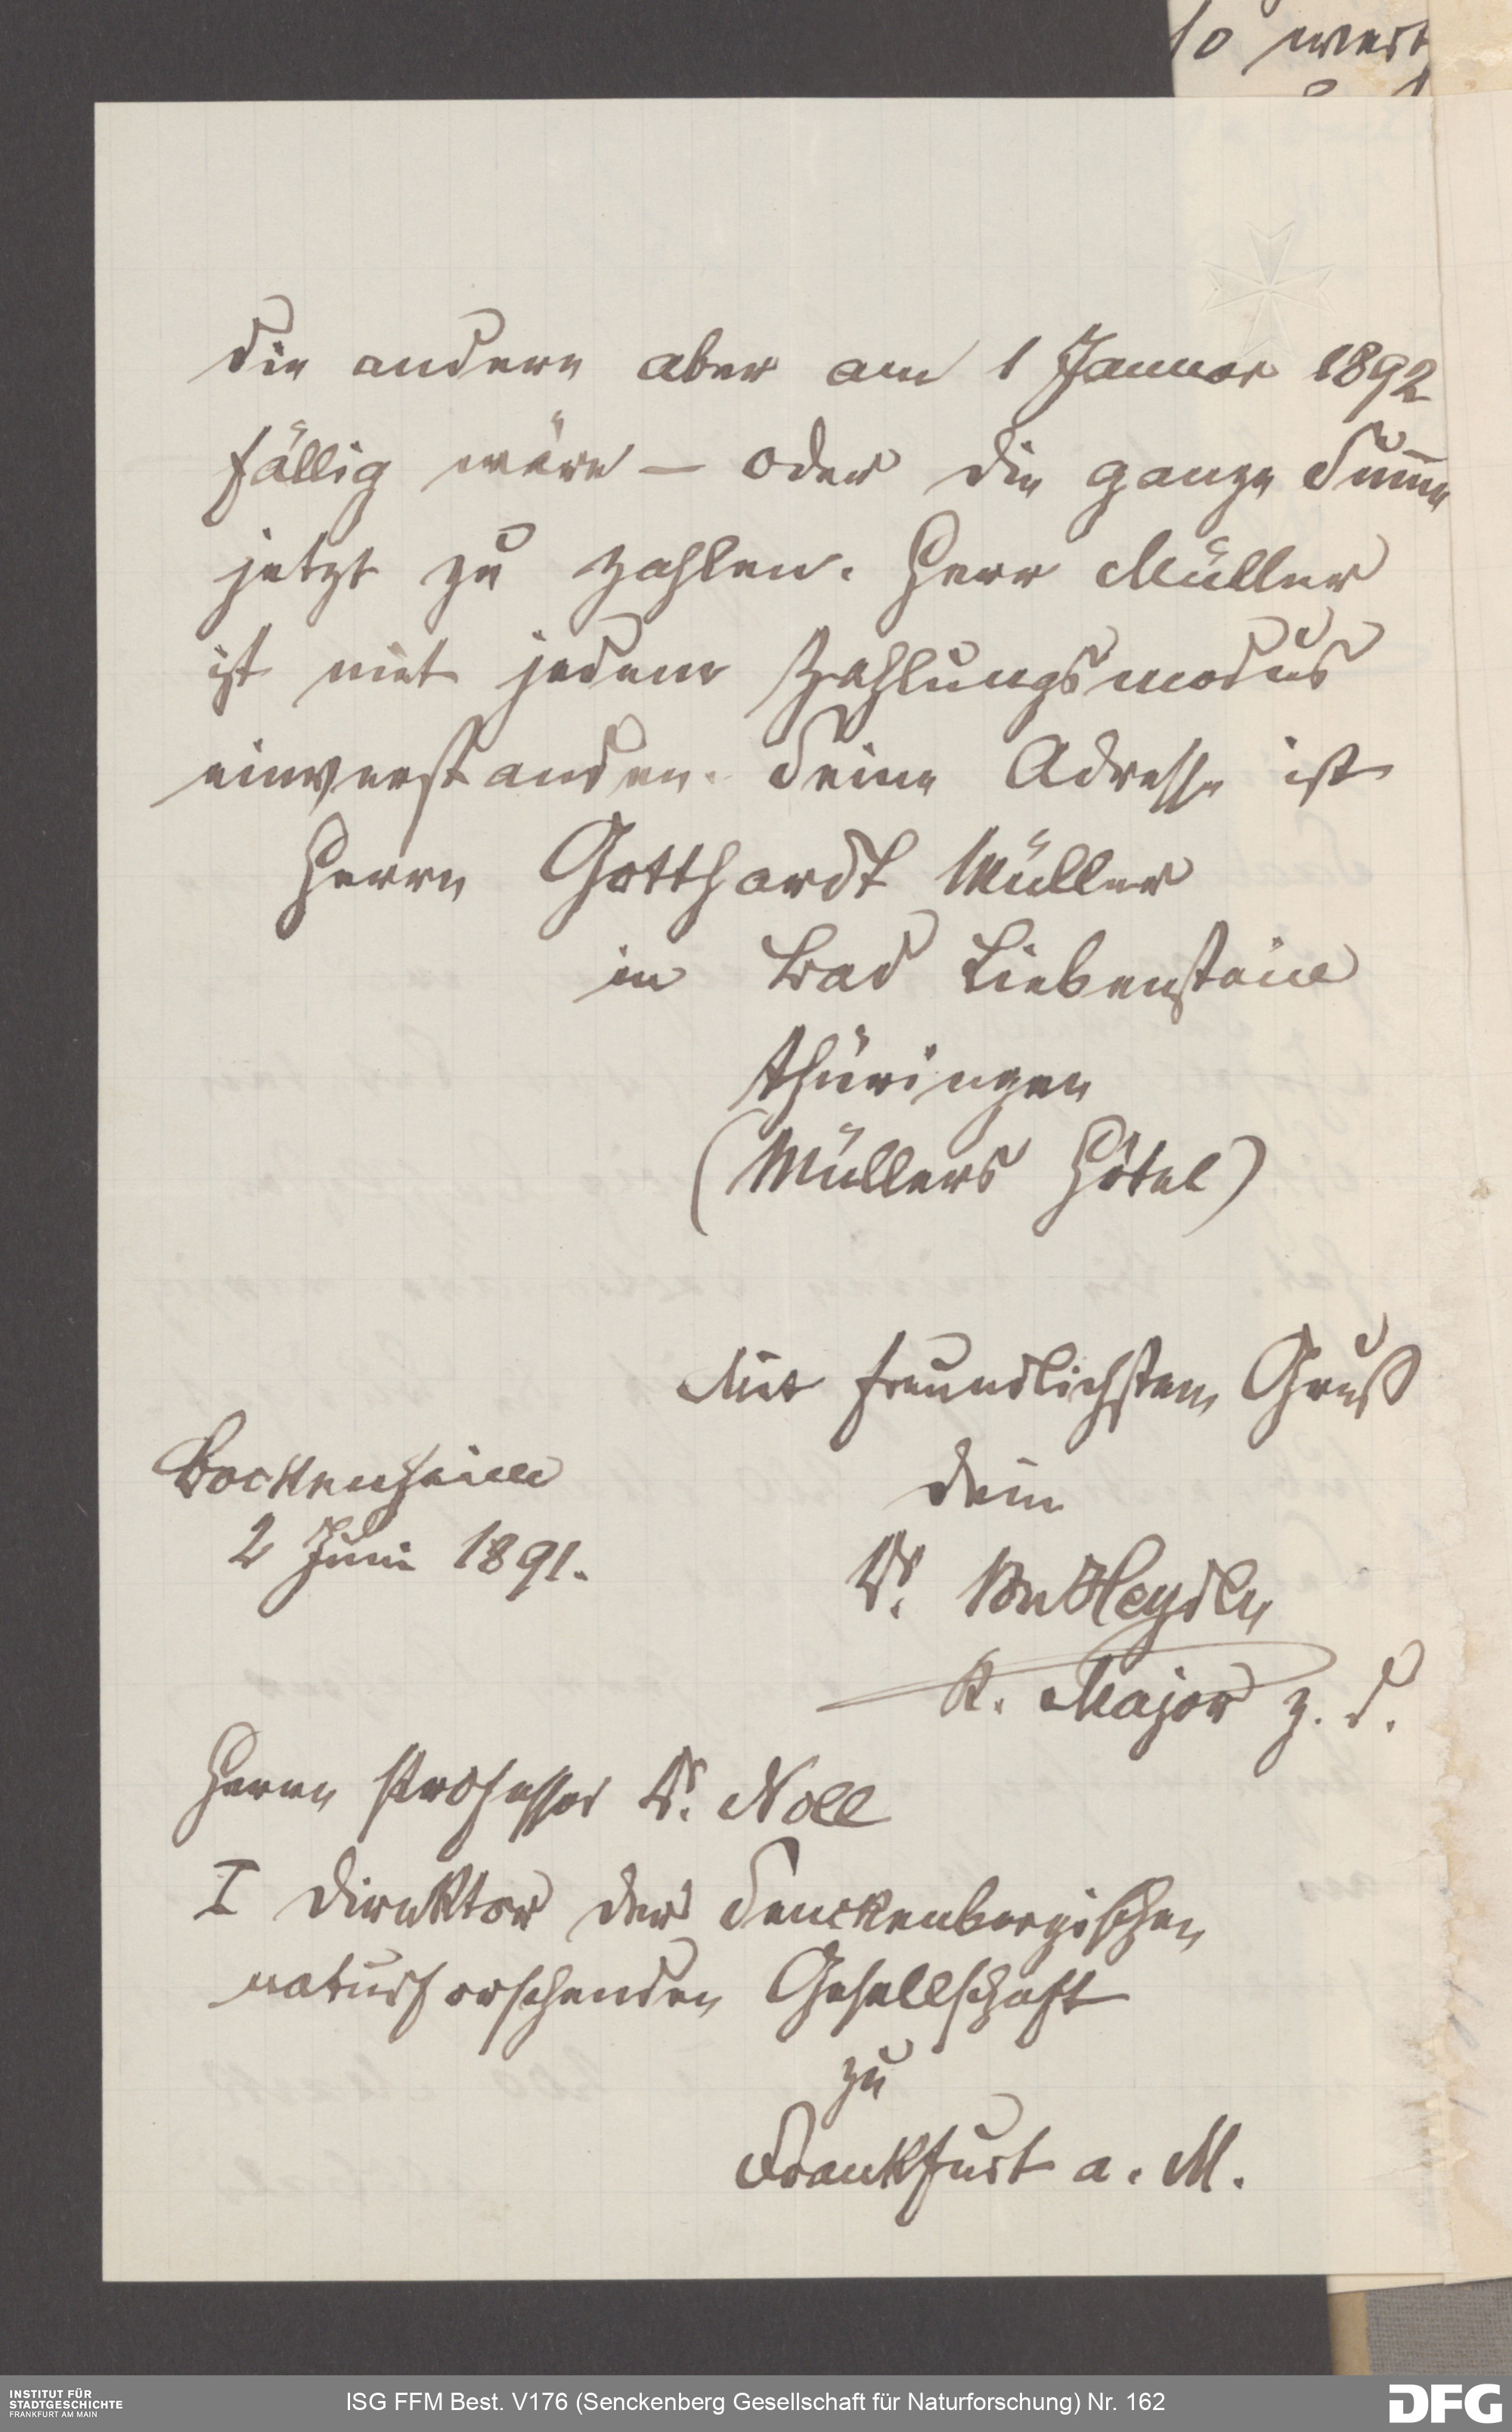 so wert
die andere aber am 1 Januar 1892
fällig wäre – oder die ganze Sum̄e
jetzt zu zahlen. Herr Müller
ist mit jedem Zahlungsmodus
einverstanden. Seine Adresse ist
Herrn Gotthardt Müller
in Bad Liebenstein
Thüringen
(Müllers Hôtel)
Mit freundlichstem Gruß
Dein
Bockenheim
2 Juni 1891.
Dr. von Heyden
K. Major z. D.
Herrn Professor Dr. Noll
I Direktor der Senckenbergischen
naturforschenden Gesellschaft
zu
Frankfurt a. M.
INSTITUT FÜR
STADTGESCHICHTE
FRANKFURT AM MAIN
ISG FFM Best. V176 (Senckenberg Gesellschaft für Naturforschung) Nr. 162
DFG